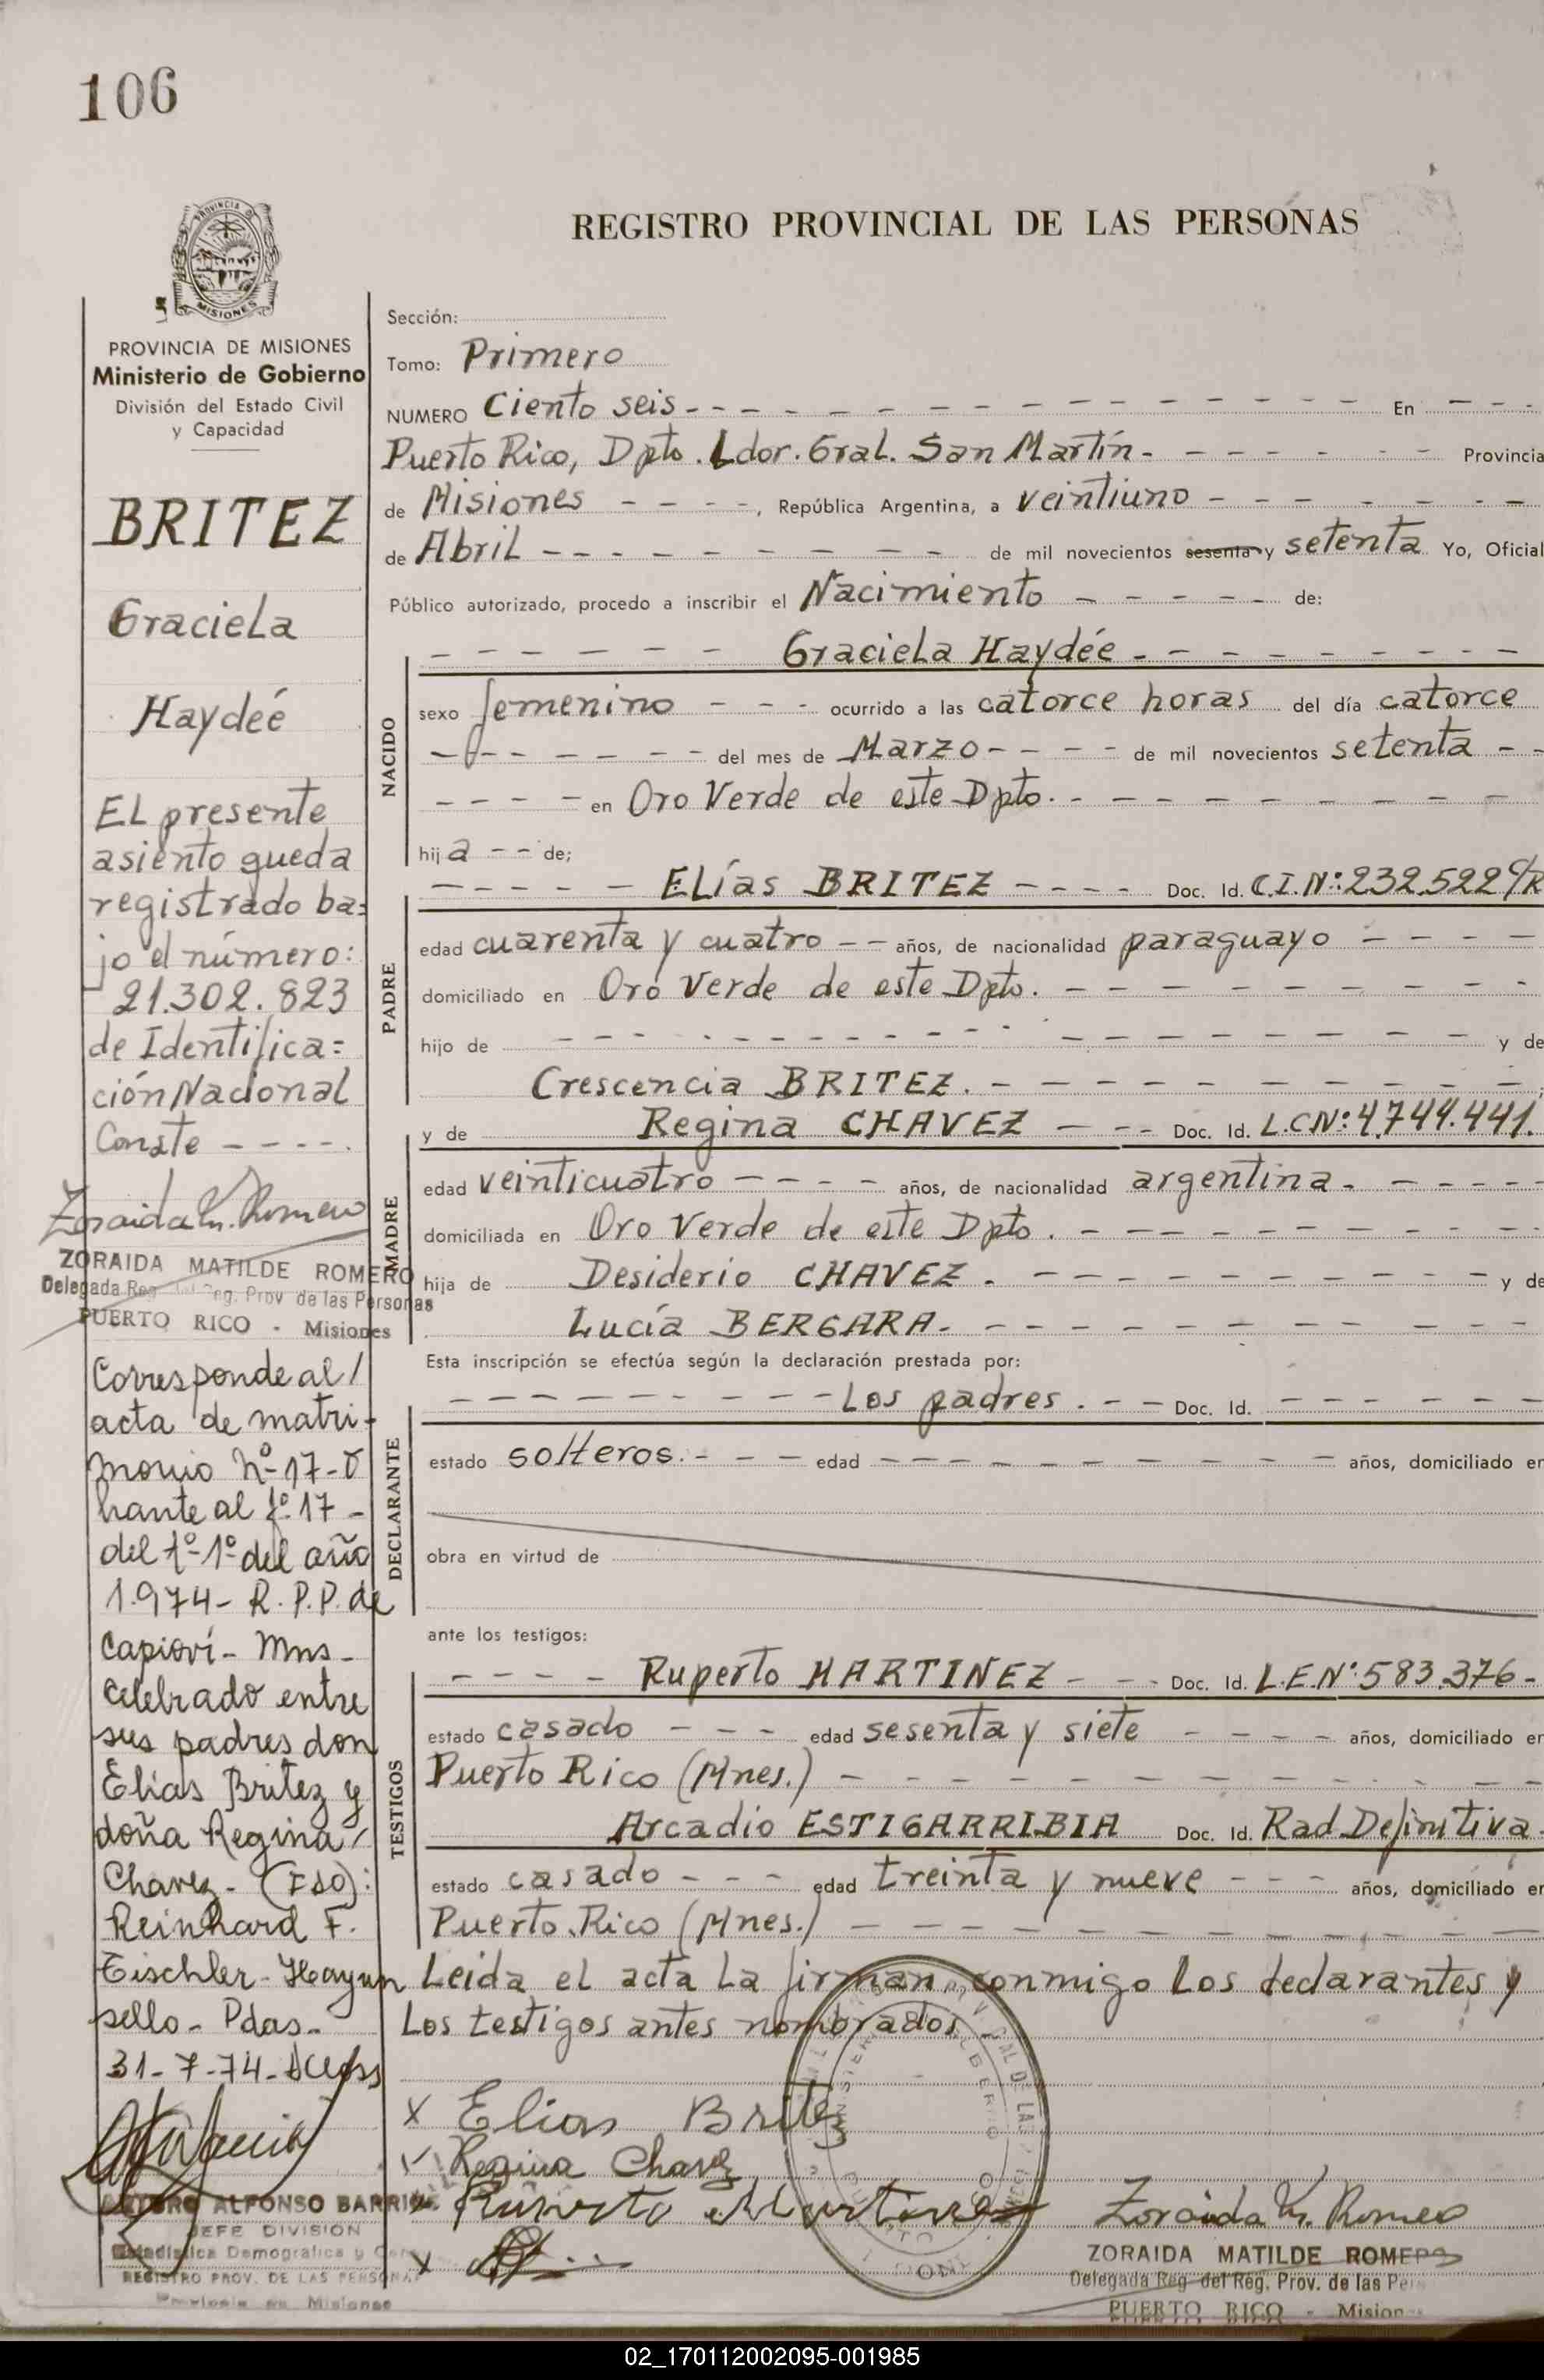 106
REGISTRO PROVINCIAL DE LAS PERSONAS
PROVINCIA DE MISIONES
Ministerio de Gobierno
División del Estado Civil
y Capacidad
BRITEZ
Graciela
Haydeé
El presente
asiento queda
registrado ba=
jo el número:
21.302.823
de Identifica=
ción Nacional
Conste - - - -.
Zoraida M. Romero
ZORAIDA MATILDE ROMERO
Delegada Reg. del Reg. Prov de las Personas
PUERTO RICO - Misiones
Corresponde al /
acta de matri-
monio Nº 17- O
brante al fº 17 -
del tº 1º del año
1.974- R.P.P. de
Capioví - Mns -
Celebrado entre
sus padres don
Elías Britez y
doña Regina /
Chavez - (FDO):
Reinhard F.
Tischler - Hay un
sello - Pdas -
31-7-74-
ALFONSO BARRI
JEFE DIVISION
Estadistica Demografica y
REGISTRO PROV. DE LAS PERSONA
Provincia de Misiones
Sección:
Tomo: Primero
NUMERO Ciento seis - - - En - - -
Puerto Rico, Dpto. Ldor. Gral. San Martín - - - Provincia
de Misiones - - - -, República Argentina, a veintiuno - - -
de Abril - - - de mil novecientos sesenta y setenta Yo, Oficial
Público autorizado, procedo a inscribir el Nacimiento - - - de:
- - - Graciela Haydée - - -
NACIDO
sexo femenino - - - ocurrido a las catorce horas del día catorce
- - - del mes de Marzo - - - de mil novecientos setenta - -
- - - - en Oro Verde de este Dpto. - - -
hija - - de;
- - - Elías BRITEZ - - - - Doc. Id. C.I.Nº: 232.522 C/R
PADRE
edad cuarenta y cuatro - - años, de nacionalidad paraguayo - - - -
domiciliado en Oro Verde de este Dpto. - - -
hijo de - - - y de
Crescencia BRITEZ. - - -
y de Regina CHAVEZ - - - Doc. Id. L.C Nº: 4.744.441.
MADRE
edad veinticuatro - - - - años, de nacionalidad argentina. - - -
domiciliada en Oro Verde de este Dpto. - - -
hija de Desiderio CHAVEZ. - - - y de
Lucía BERGARA. - - -
Esta inscripción se efectúa según la declaración prestada por:
- - - Los padres. - - Doc. Id. - - -
DECLARANTE
estado solteros. - - - edad - - - años, domiciliado en
obra en virtud de
ante los testigos:
- - - - Ruperto MARTINEZ - - - Doc. Id. L.E.Nº: 583.376 -
TESTIGOS
estado casado - - - edad sesenta y siete - - - - años, domiciliado en
Puerto Rico (Mnes.) - - -
Arcadio ESTIGARRIBIA Doc. Id. Rad. Definitiva.
estado casado - - - edad treinta y nueve - - - años, domiciliado en
Puerto Rico (Mnes.) - - -
Leida el acta la firman conmigo los declarantes y
los testigos antes nombrados
x Elias Britez
Regina Chavez
Ruperto Martinez
x
Zoraida M. Romero
ZORAIDA MATILDE ROMERO
Delegada Reg. del Reg. Prov. de las Per
PUERTO RICO - Mision
02_170112002095-001985